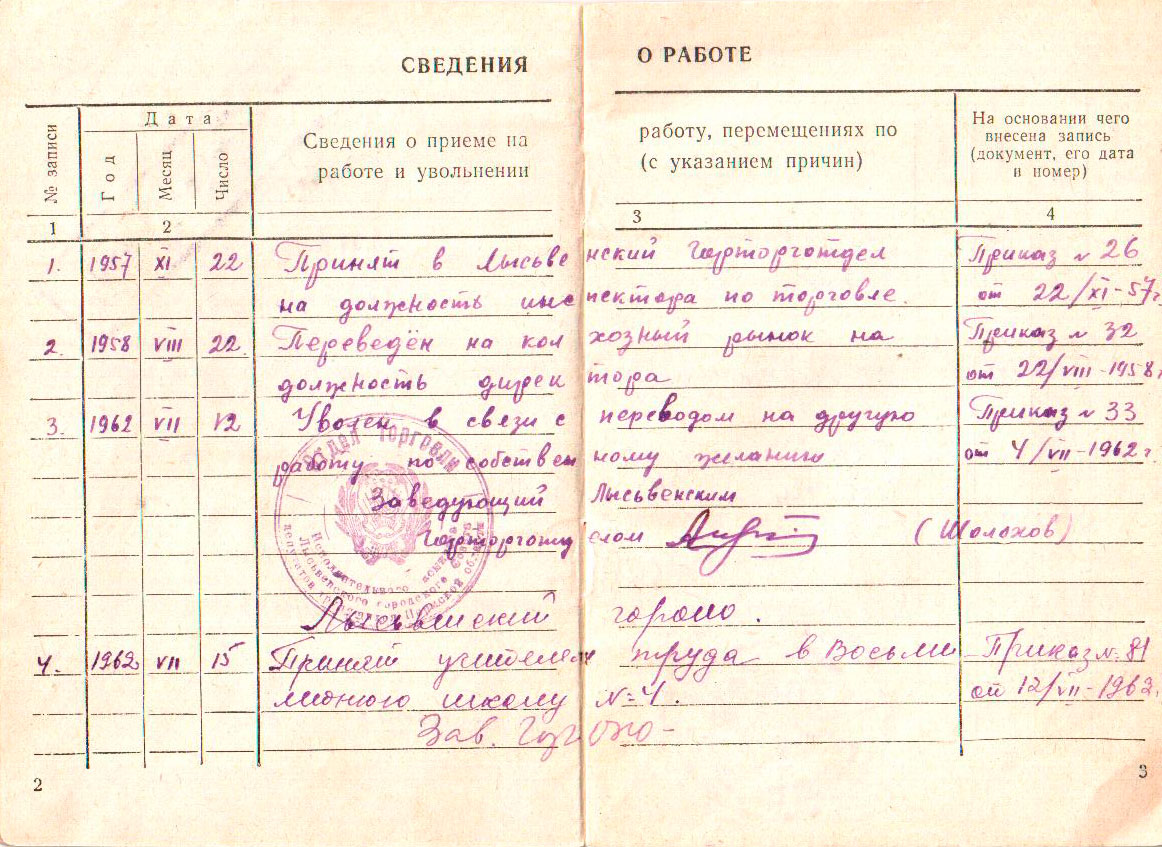 СВЕДЕНИЯ О РАБОТЕ
№ записи
Дата
Год
Месяц
Число
Сведения о приеме на работу, перемещениях по
работе и увольнении (с указанием причин)
На основании чего
внесена запись
(документ, его дата
и номер)
1 2 3 4
1. 1957 XI 22 Принят в Лысьвенский Горторготдел Приказ № 26
на должность инспектора по торговле. от 22/XI-57 г.
2. 1958 VIII 22. Переведён на колхозный рынок на Приказ № 32
должность директора от 22/VIII-1958 г
3. 1962 VII 12 Уволен в связи с переводом на другую Приказ № 33
работу по собственному желанию от 4/VII-1962 г.
Заведующий Лысьвенским
Горторготделом (Шолохов)
Отдел торговли
Исполнительного комитета
Лысьвенского городского Совета
депутатов трудящихся Пермской области
Лысьвенский гороно.
4. 1962 VII 15 Принят учителем труда в Восьми Приказ № 81
летнюю школу № 4. от 12/VII-1962
Зав. Гороно-
2
3